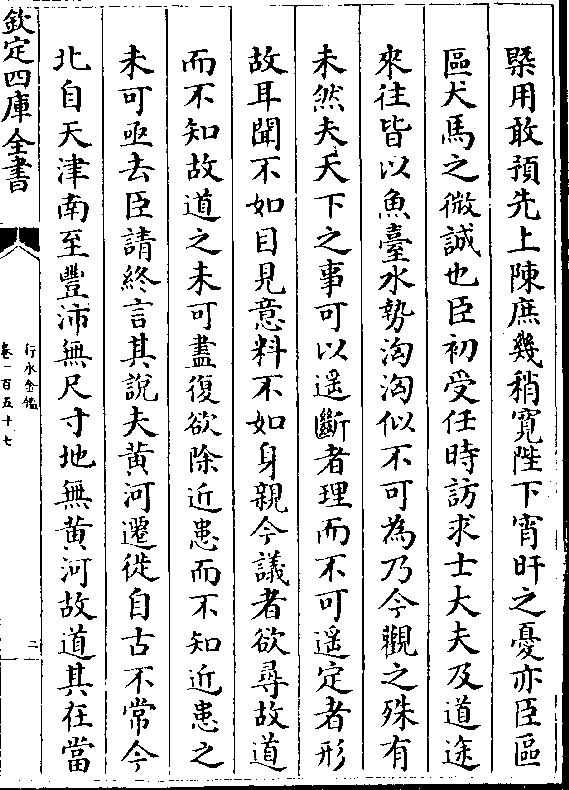 槩用敢預先上陳庶幾稍寛陛下宵旰之憂亦臣區
區犬馬之微誠也臣初受任時訪求士大夫及道途
來往皆以魚臺水勢洶洶似不可為乃今觀之殊有
未然夫天下之事可以遥斷者理而不可遥定者形
故耳聞不如目見意料不如身親今議者欲尋故道
而不知故道之未可盡復欲除近患而不知近患之
未可亟去臣請終言其說夫黄河遷徙自古不常今
北自天津南至豐沛無尺寸地無黄河故道其在當
欽定四庫全書
行水金鑑
卷一百五十七
二